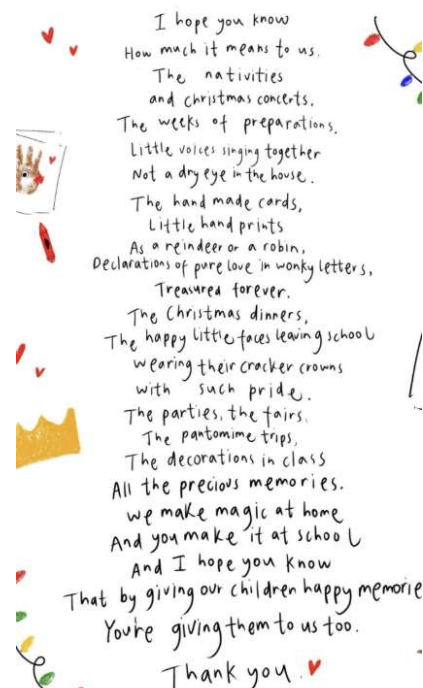 I hope you know
How much it means to us.
The nativities
and christmas concerts.
The weeks of preparations,
Little voices singing together
Not a dry eye in the house.
The hand made cards,
Little hand prints
As a reindeer or a robin,
Declarations of pure love in wonky letters,
Treasured forever.
The Christmas dinners,
The happy little faces leaving school
wearing their cracker crowns
with such pride.
The parties, the fairs,
The pantomime trips,
The decorations in class
All the precious memories.
we make magic at home
And you make it at school
And I hope you know
That by giving our children happy memorie
You're giving them to us too.
Thank you.